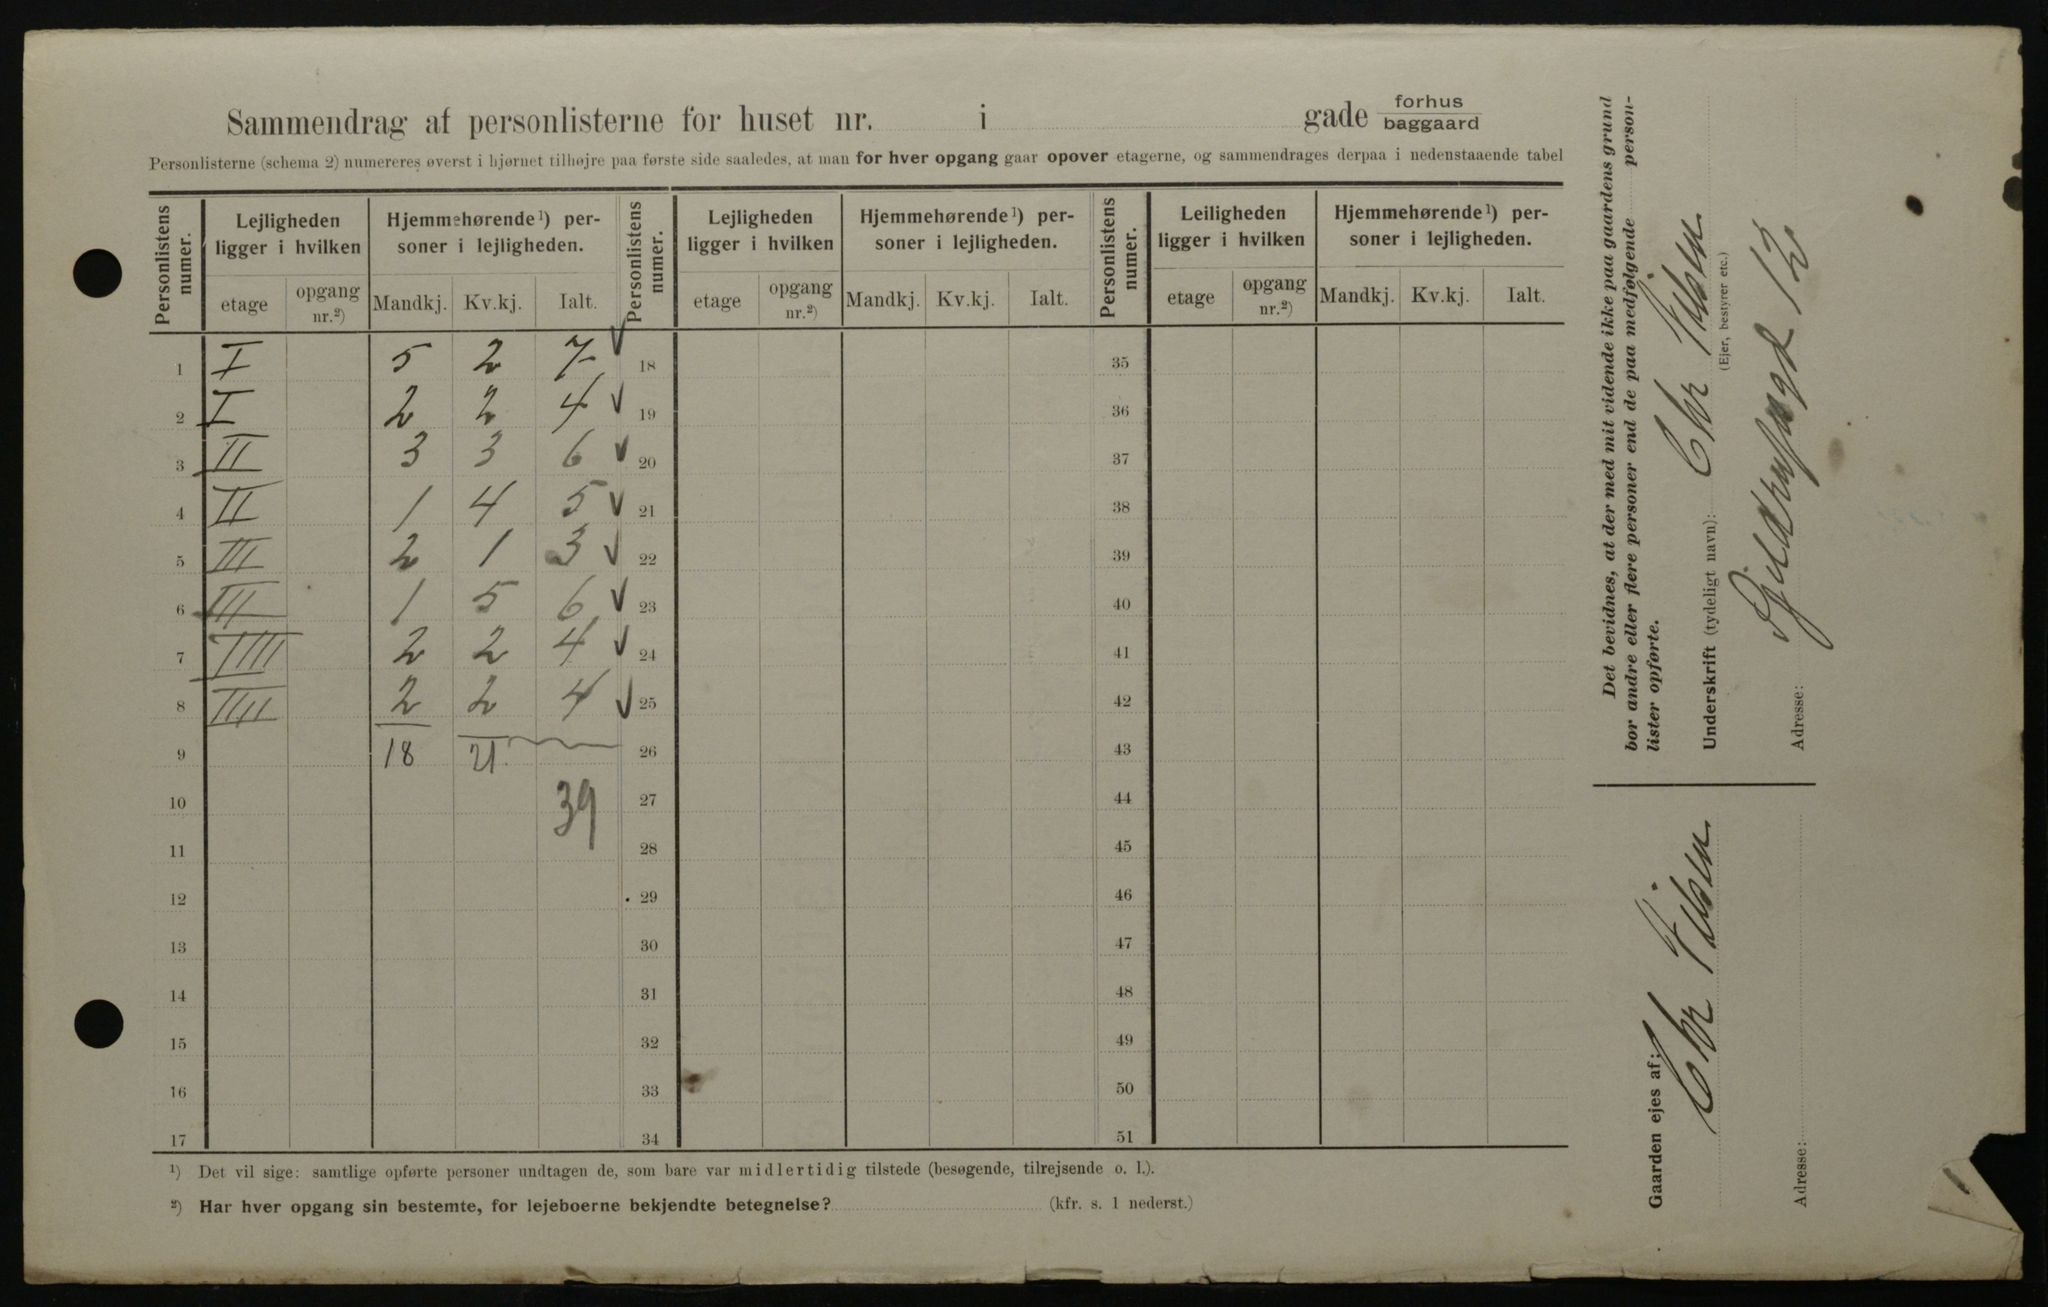 Sammendrag af personlisterne for huset nr. i gade forhus
baggaard
Personlisterne (schema 2) numereres øverst i hjørnet tilhøjre paa første side saaledes, at man for hver opgang gaar opover etagerne, og sammendrages derpaa i nedenstaaende tabel
Personlistens numer. Lejligheden ligger i hvilken Hjemmehørende¹) personer i lejligheden. Personlistens numer. Lejligheden ligger i hvilken Hjemmehørende¹) personer i lejligheden. Personlistens numer. Leiligheden ligger i hvilken Hjemmehørende¹) personer i lejligheden.
etage opgang nr.²) Mandkj. Kv.kj. Ialt. etage opgang nr.²) Mandkj. Kv.kj. Ialt. etage opgang nr.²) Mandkj. Kv.kj. Ialt.
1 I 5 2 7 ✓ 18 35
2 I 2 2 4 ✓ 19 36
3 II 3 3 6 ✓ 20 37
4 II 1 4 5 ✓ 21 38
5 III 2 1 3 ✓ 22 39
6 III 1 5 6 ✓ 23 40
7 IIII 2 2 4 ✓ 24 41
8 IIII 2 2 4 ✓ 25 42
9 18 21. 26 43
10 39 27 44
11 28 45
12 29 46
13 30 47
14 31 48
15 32 49
16 33 50
17 34 51
¹) Det vil sige: samtlige opførte personer undtagen de, som bare var midlertidig tilstede (besøgende, tilrejsende o. l.).
²) Har hver opgang sin bestemte, for lejeboerne bekjendte betegnelse? (kfr. s. 1 nederst.)
Det bevidnes, at der med mit vidende ikke paa gaardens grund
bor andre eller flere personer end de paa medfølgende person-
lister opførte.
Underskrift (tydeligt navn): Chr
(Ejer, bestyrer etc.)
Adresse: 12
Gaarden ejes af: Chr
Adresse: